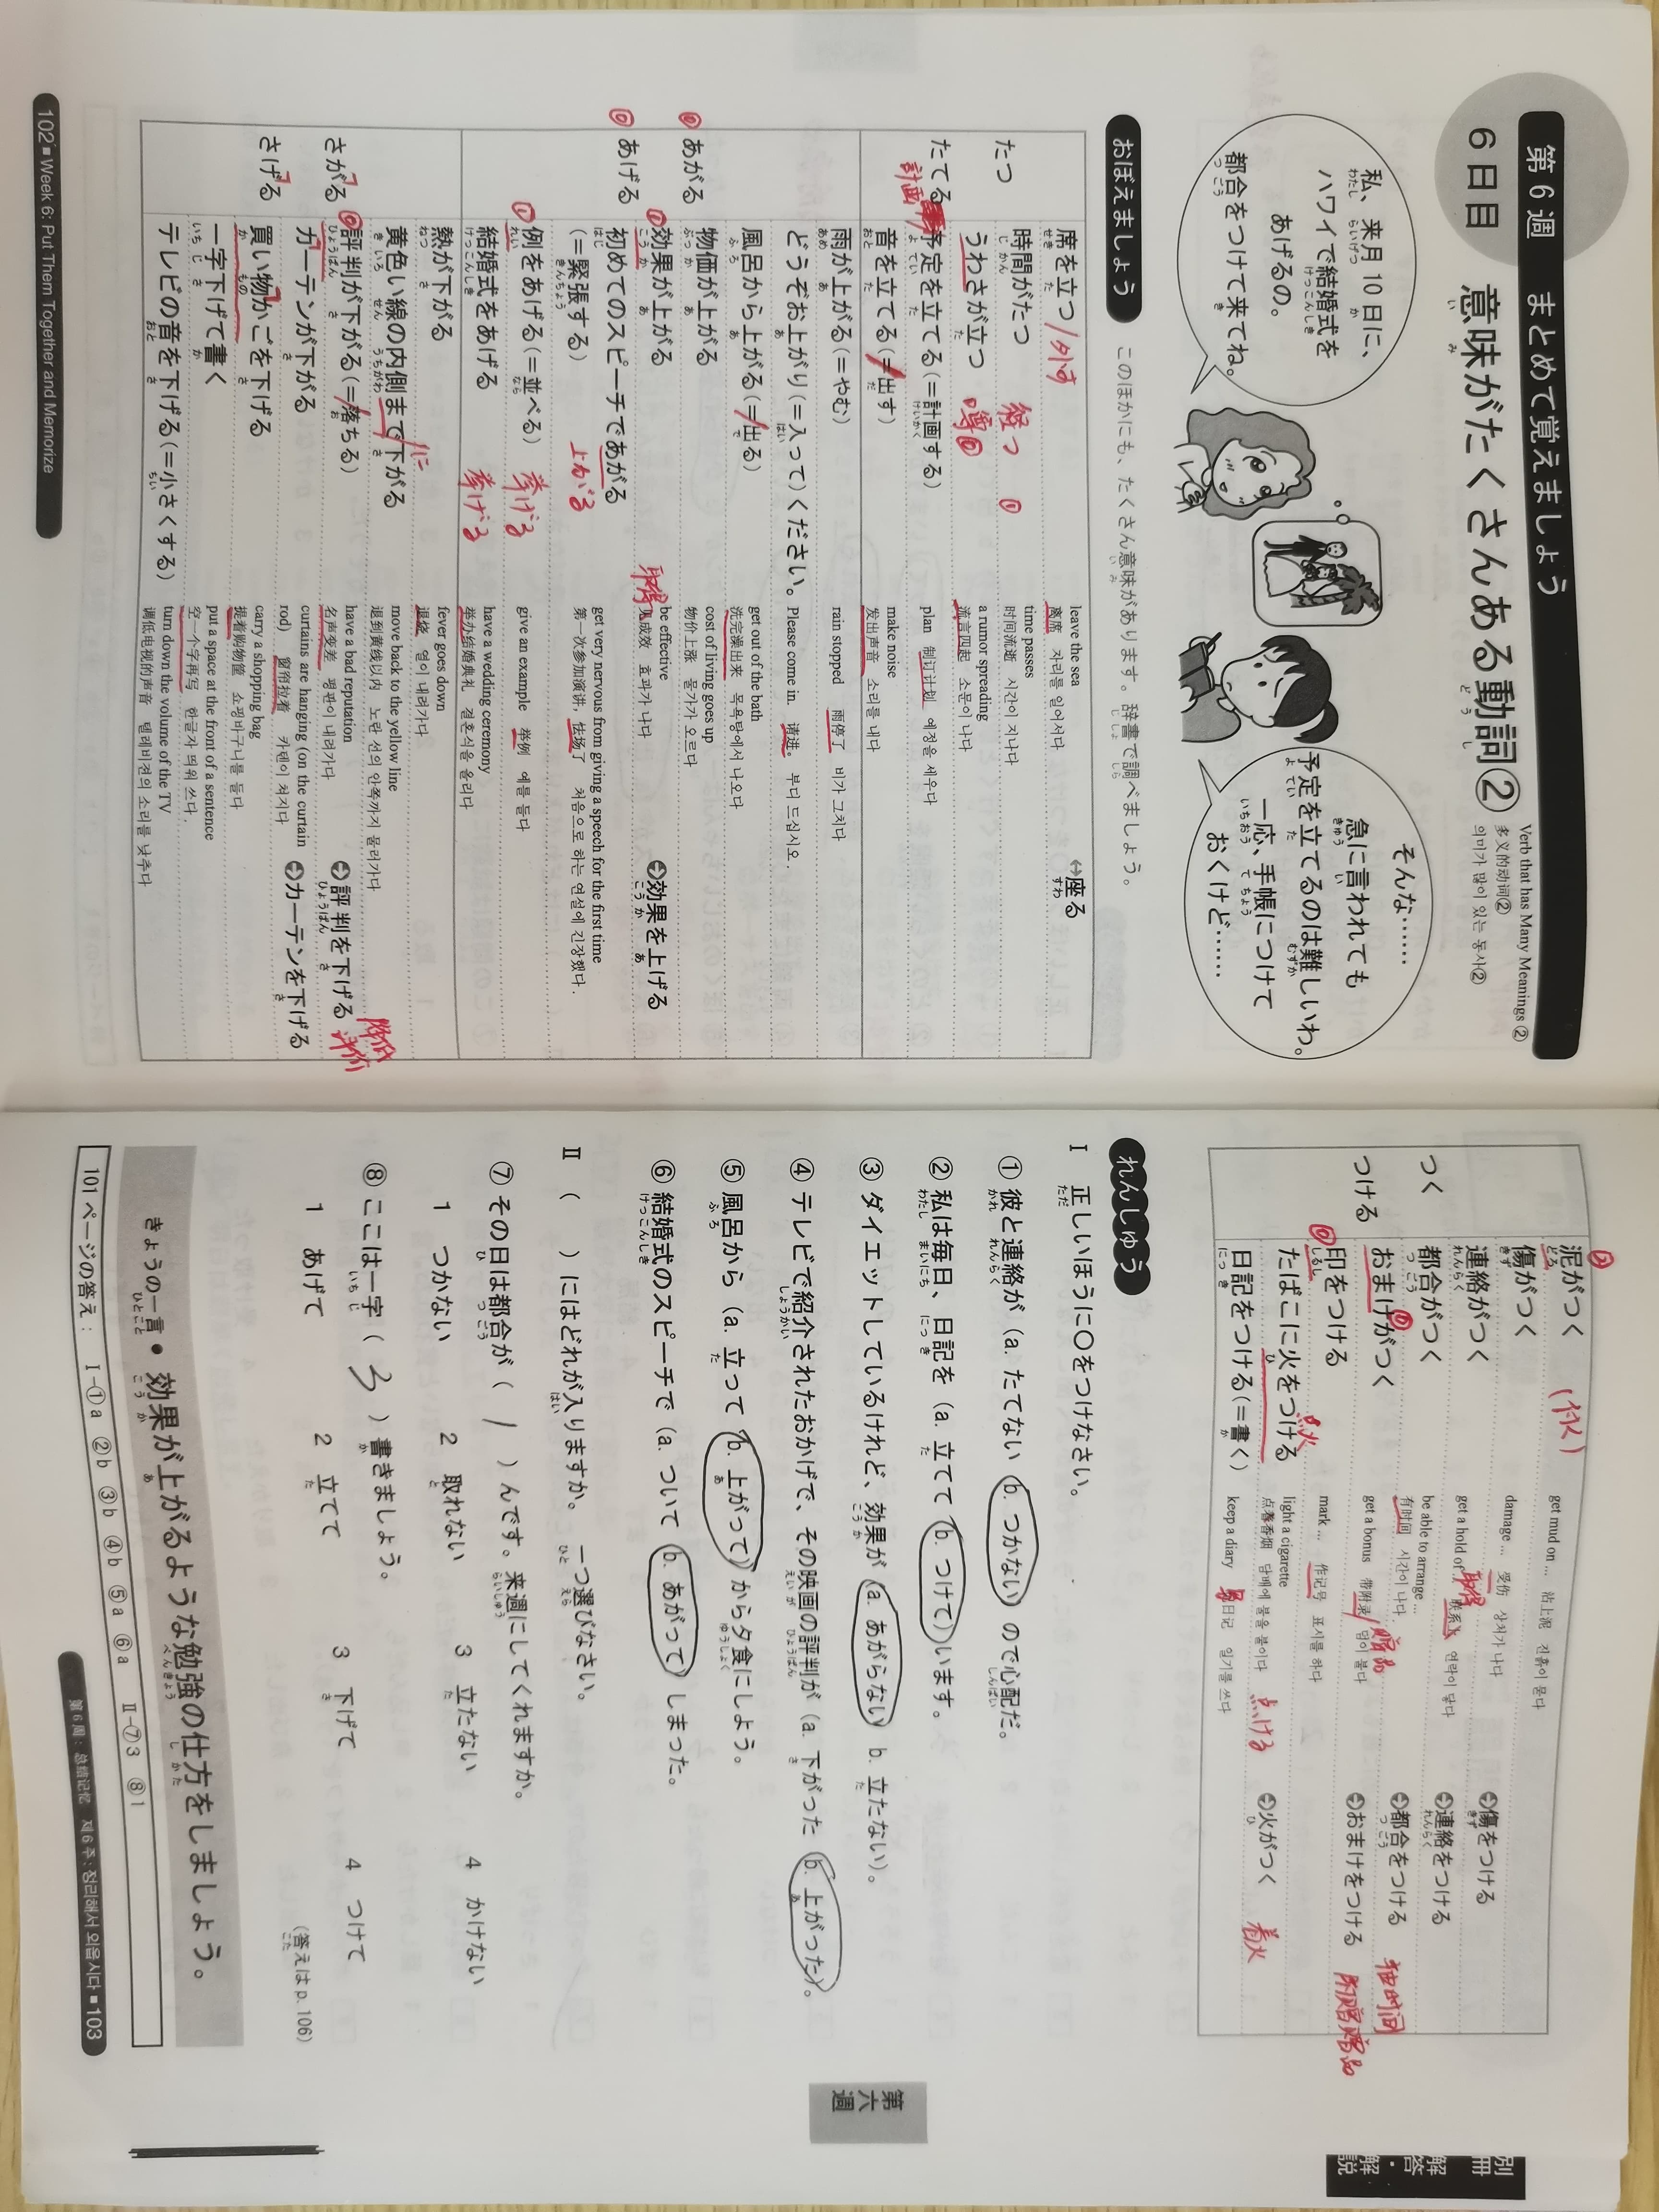 第6週 まとめて覚えましょう
6日目 意味がたくさんある動詞②
Verb that has Many Meanings ②
多义的动词②
의미가 많이 있는 동사②
私、来月10日に、
ハワイで結婚式を
あげるの。
都合をつけて来てね。
そんな……
急に言われても
予定を立てるのは難しいわ。
一応、手帳につけて
おくけど……
おぼえましょう このほかにも、たくさん意味があります。辞書で調べましょう。
たつ
たてる
計画
席を立つ/外す leave the sea 离席 자리를 일어서다 ↔座る
時間がたつ 経つ ① time passes 时间流逝 시간이 지나다
うわさが立つ 噂 a rumor spreading 流言四起 소문이 나다
予定を立てる(=計画する) plan 制订计划 예정을 세우다
音を立てる(=出す) make noise 发出声音 소리를 내다
あがる
あげる
雨が上がる(=やむ) rain stopped 雨停了 비가 그치다
どうぞお上がり(=入って)ください。 Please come in. 请进。 부디 드십시오.
風呂から上がる(=出る) get out of the bath 洗完澡出来 목욕탕에서 나오다
物価が上がる cost of living goes up 物价上涨 물가가 오르다
効果が上がる be effective 取得 成效 효과가 나다 効果を上げる
初めてのスピーチであがる get very nervous from giving a speech for the first time
(=緊張する) 上がる 第一次参加演讲,怯场了 처음으로 하는 연설에 긴장했다.
例をあげる(=並べる) 挙げる give an example 举例 예를 들다
結婚式をあげる 挙げる have a wedding ceremony 举办结婚典礼 결혼식을 올리다
さがる
さげる
熱が下がる fever goes down 退烧 열이 내려가다
黄色い線の内側まで下がる /に move back to the yellow line 退到黄线以内 노란 선의 안쪽까지 물러가다
評判が下がる(=落ちる) have a bad reputation 名声变差 평판이 내려가다 評判を下げる 降低评价
カーテンが下がる curtains are hanging (on the curtain rod) 窗帘拉着 카텐이 쳐지다 カーテンを下げる
買い物かごを下げる carry a shopping bag 提着购物筐 쇼핑바구니를 들다
一字下げて書く put a space at the front of a sentence 空一个字再写 한글자 띄워 쓰다.
テレビの音を下げる(=小さくする) turn down the volume of the TV 调低电视的声音 텔레비전의 소리를 낮추다
102 ■ Week 6: Put Them Together and Memorize
つく
つける
泥がつく (付く) get mud on ... 沾上泥 진흙이 묻다
傷がつく damage ... 受伤 상처가 나다 傷をつける
連絡がつく get a hold of 取得 联系上 연락이 닿다 連絡をつける
都合がつく be able to arrange ... 有时间 시간이 나다. 都合をつける 抽时间
おまけがつく get a bonus 带附录/赠品 덤이 붙다 おまけをつける 附赠品
印をつける mark ... 作记号 표시를 하다
たばこに火をつける 点火 light a cigarette 点着香烟 담배에 불을 붙이다 点ける 火がつく 着火
日記をつける(=書く) keep a diary 写日记 일기를 쓰다
れんしゅう
I 正しいほうに○をつけなさい。
① 彼と連絡が(a. たてない b. つかない)ので心配だ。
② 私は毎日、日記を(a. 立てて b. つけて)います。
③ ダイエットしているけれど、効果が(a. あがらない b. 立たない)。
④ テレビで紹介されたおかげで、その映画の評判が(a. 下がった b. 上がった)。
⑤ 風呂から(a. 立って b. 上がって)から夕食にしよう。
⑥ 結婚式のスピーチで(a. ついて b. あがって)しまった。
II ( )にはどれが入りますか。一つ選びなさい。
⑦ その日は都合が( 1 )んです。来週にしてくれますか。
1 つかない 2 取れない 3 立たない 4 かけない
⑧ ここは一字( 3 )書きましょう。
1 あげて 2 立てて 3 下げて 4 つけて
(答えは p. 106)
きょうの一言● 効果が上がるような勉強の仕方をしましょう。
101ページの答え: I-①a ②b ③b ④b ⑤a ⑥a II-⑦3 ⑧1
第6周:总结记忆 제6주:정리해서 외웁시다 ■ 103
第六週
別冊
解答・解説